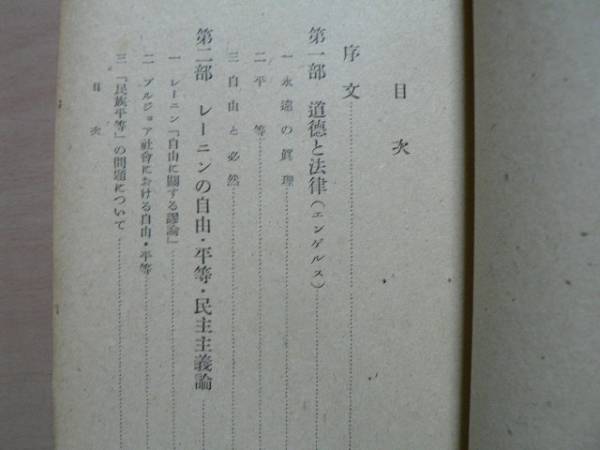 目次
序文
第一部 道德と法律(エンゲルス)
一 永遠の眞理
二 平等
三 自由と必然
第二部 レーニンの自由・平等・民主主義論
一 レーニン「自由に關する謬論」
二 ブルジョア社會における自由・平等
三 「民族平等」の問題について
目次